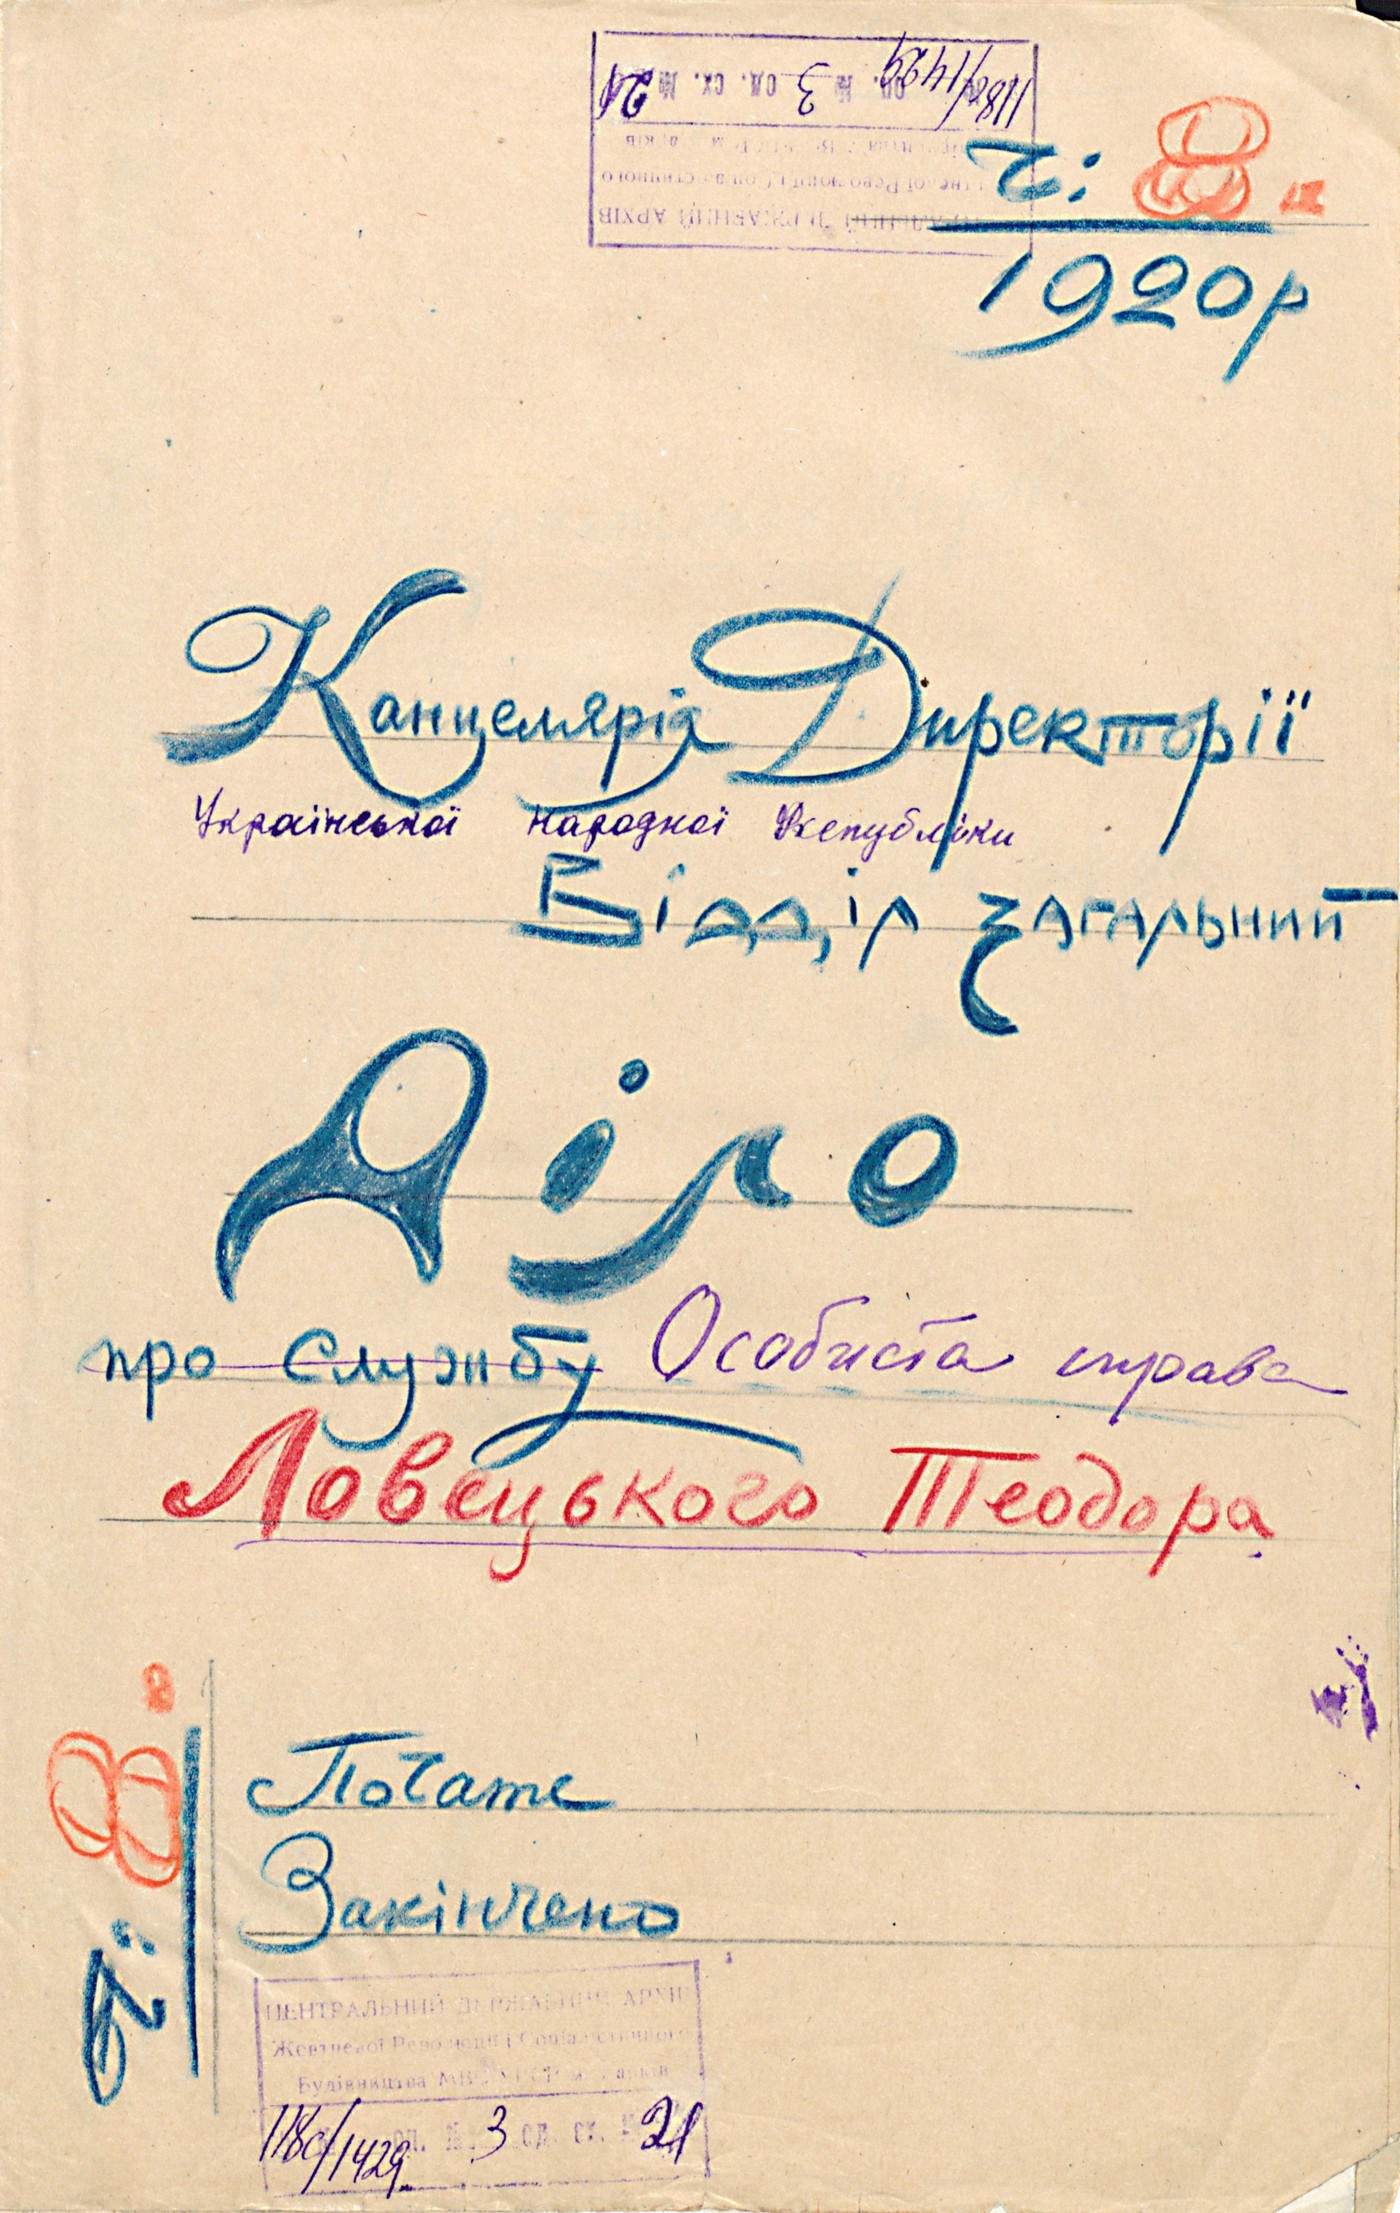 ч: 8.
1920р
Канцелярія Директорії
Української Народної Республіки
Відділ загальний
Діло
про службу Особиста справа
Ловецького Теодора
Почате
Закінчено
ч: 8.
ЦЕНТРАЛЬНИЙ ДЕРЖАВНИЙ АРХІВ
Жовтневої Революції і Соціалістичного
Будівництва МВС УРСР м. Харків
118с/1429 оп. № 3 од. сх. № 21
ЦЕНТРАЛЬНИЙ ДЕРЖАВНИЙ АРХІВ
Жовтневої Революції і Соціалістичного
Будівництва МВС УРСР м. Харків
118с/1429 оп. № 3 од. сх. № 21